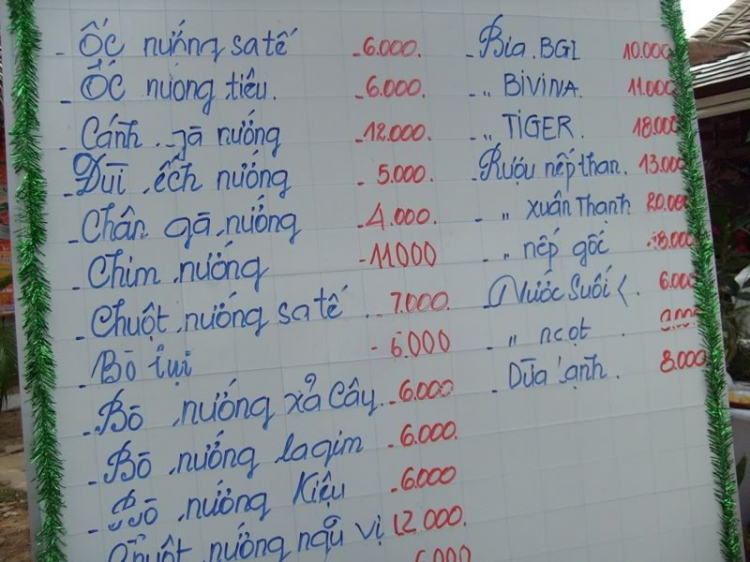 - Ốc nướng sa tế - 6.000.
- Ốc nướng tiêu. - 6.000.
- Cánh gà nướng - 12.000.
- Đùi ếch nướng - 5.000.
- Chân gà nướng - 4.000.
- Chim nướng - 11000
- Chuột nướng sa tế 7.000.
- Bò lụi - 6.000
- Bò nướng xả cây - 6.000
- Bò nướng lagim - 6.000.
- Bò nướng Kiệu - 6.000
Chuột nướng ngũ vị 12 000.
6000
- Bia. BGI 10.000
- " BiViNA. 11.000
- " TiGER. 18.000
- Rượu nếp than. 13.000
- " xuân Thạnh 20.000
- " nếp gốc - 18.000
- Nước Suối 6.000
- " ngọt
- Dừa lạnh. 8.000